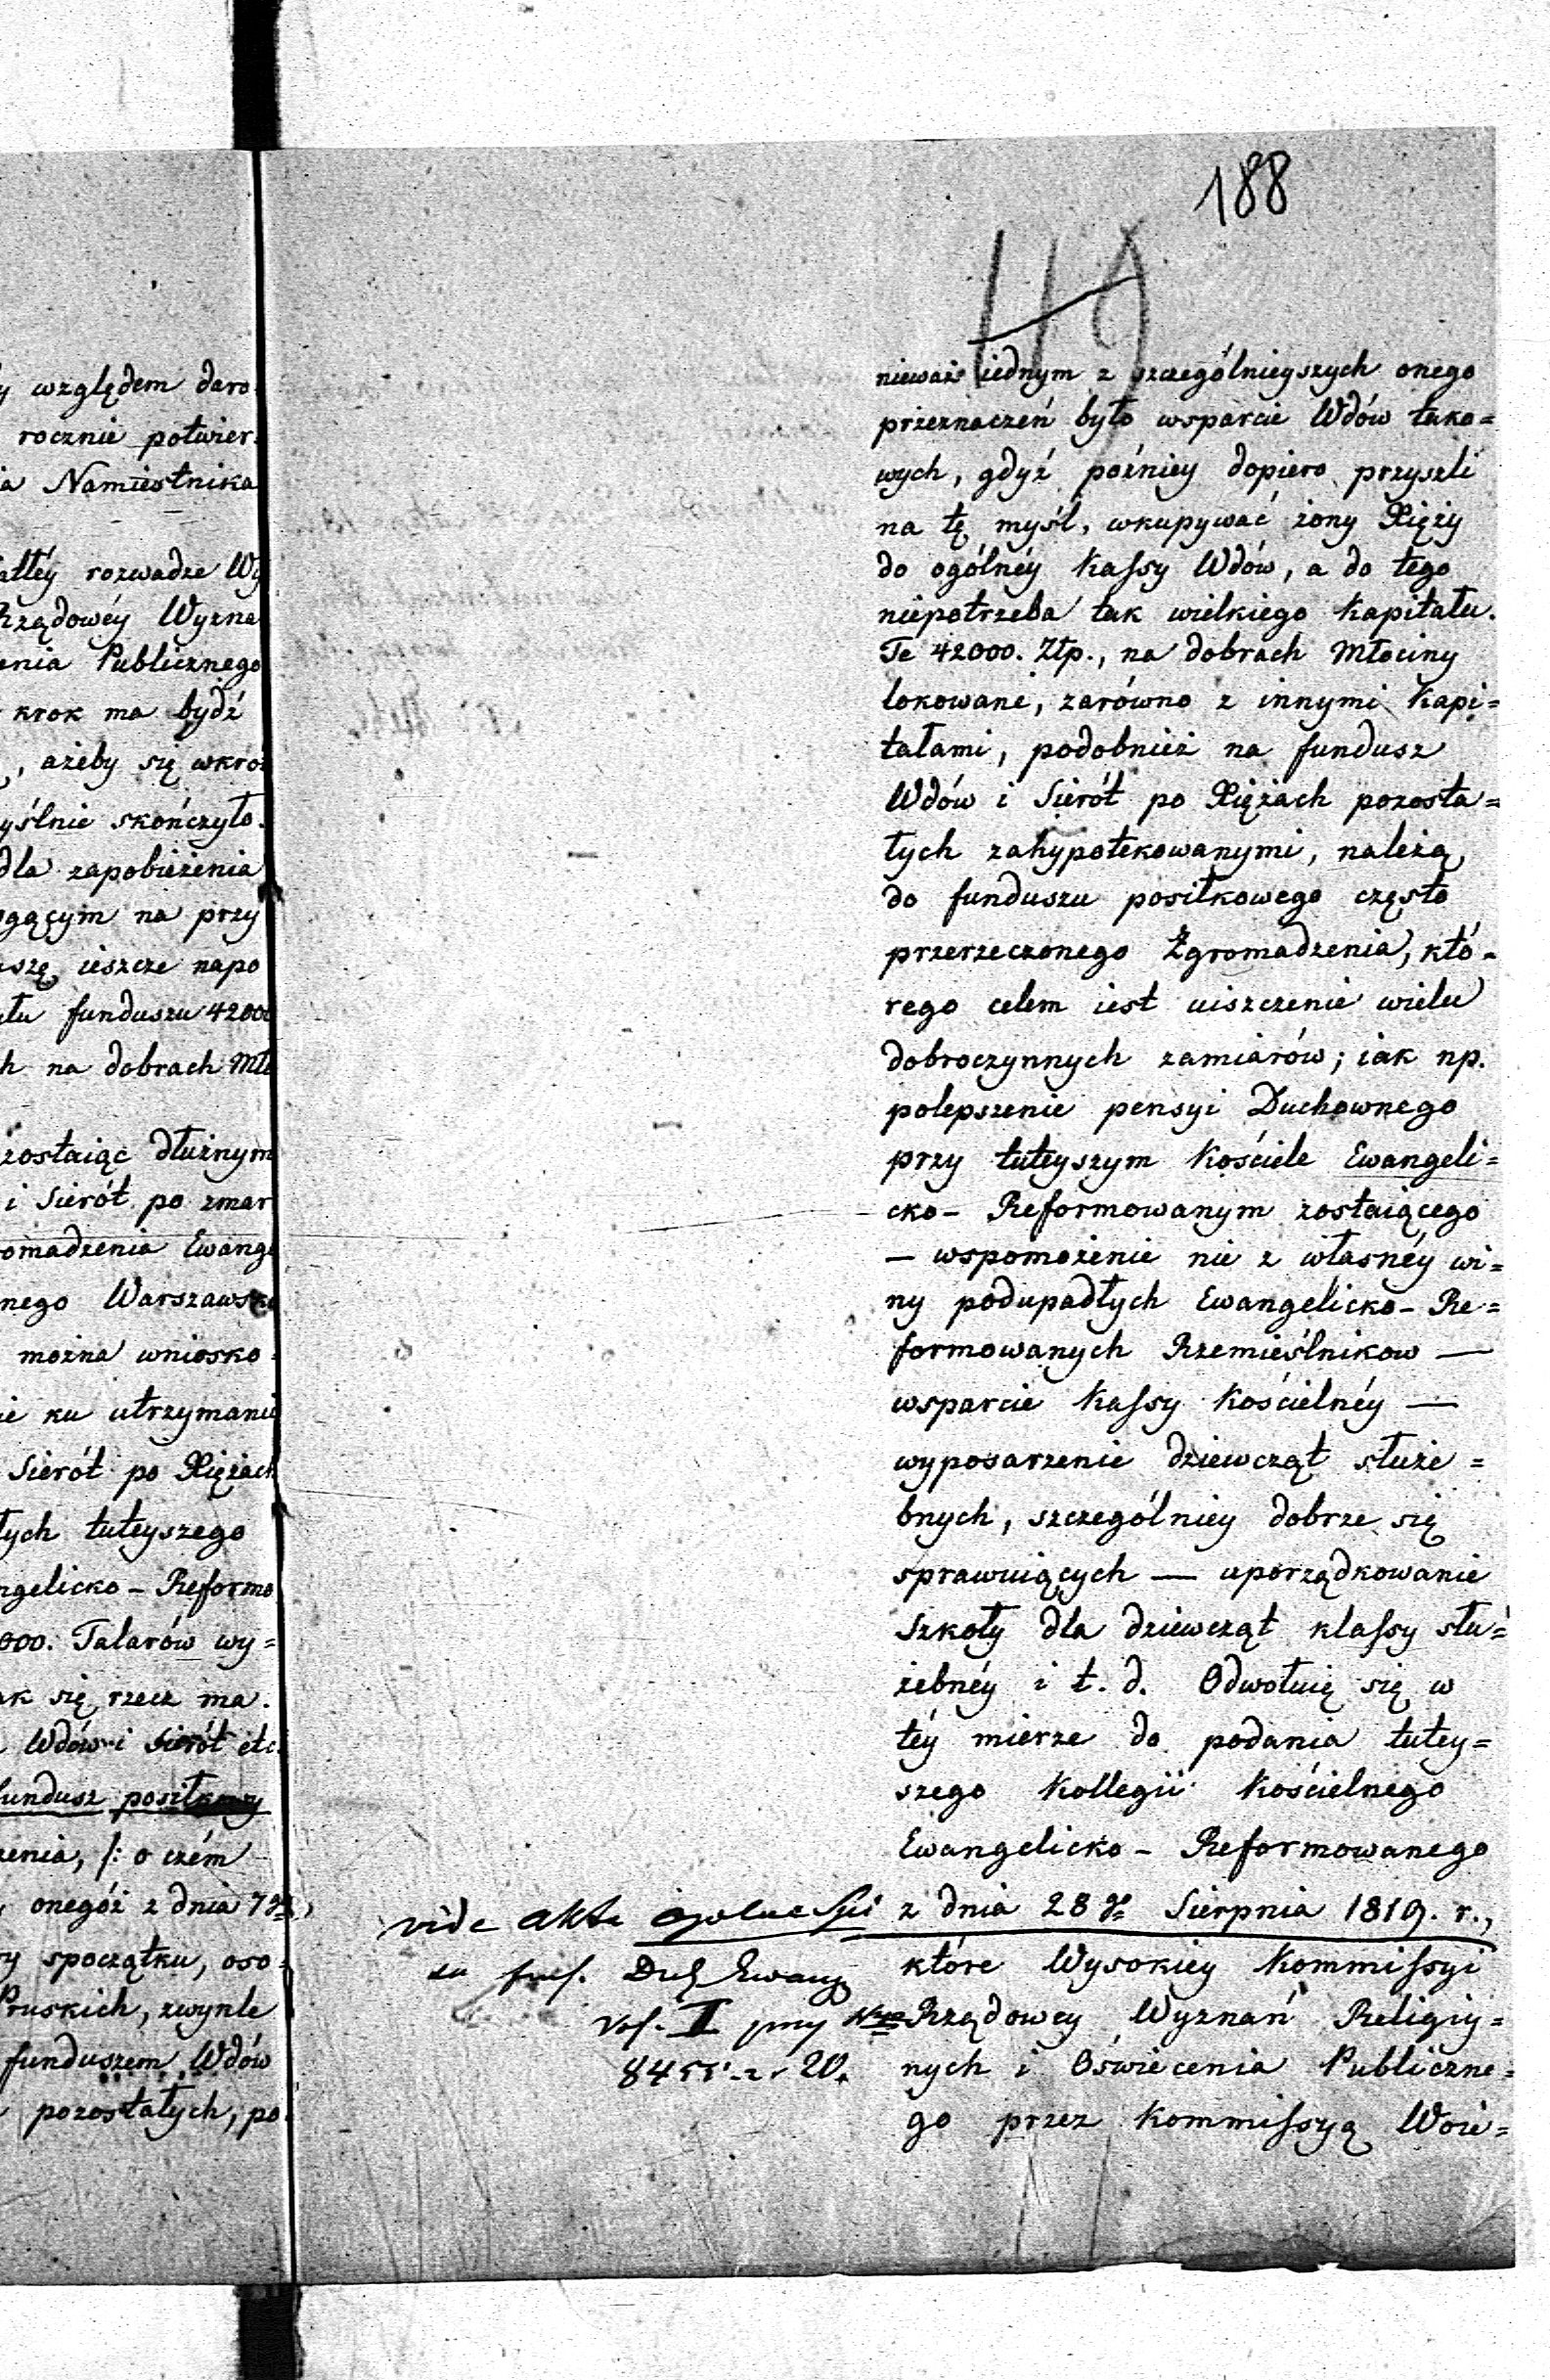 y względem daro=
rocznie potwier=
ia Namiestnika
rozwadze Wy
Rządowéy Wyzna
enia Publicznego
krok ma bydź
, ażeby się wkró
yślnie skończyło.
dla zapobieżenia
ogącym na przy
ieszcze napo
funduszu 42000
h na dobrach Mło
zostaiąc dłużnym
i Sierót po zmar
omadzenia Ewange
nego Warszawsk
można wniosko=
ie ku utrzymaniu
Sierót po Xiężach
łych tuteyszego
ngelicko - Reformo
000. Talarów wy=
ak się rzecz ma.
Wdów i Sierót etc.
fundusz posiłkowy
zenia, /: o czém
onegóż z dnia 7go
y spoczątku, oso=
Pruskich, zwykle
funduszem Wdów
pozostałych, po=
188
119
nieważ iednym z szczególnieyszych onego
przeznaczeń było wsparcie Wdów tako=
wych, gdyż poźniey dopiero przyszli
na tę myśl, wkupywać żony Xięży
do ogólnéy Kassy Wdów, a do tego
niepotrzeba tak wielkiego Kapitału.
Te 42000. Złp., na dobrach Młociny
lokowane, zarówno z innymi Kapi=
tałami, podobnież na fundusz
Wdów i Sierót po Xiężach pozosta=
łych zahypotekowanymi, należą
do funduszu posiłkowego często
przerzeczonego Zgromadzenia, któ=
rego celem iest uiszczenie wielu
dobroczynnych zamiarów; iak np.
polepszenie pensyi Duchownego
przy tuteyszym Kościele Ewangeli=
cko - Reformowanym zostaiącego
— wspomożenie nie z własnéy wi=
ny podupadłych Ewangelicko - Re=
formowanych Rzemieślnikow —
wsparcie Kassy Kościelnéy —
wyposarzenie dziewcząt służe=
bnych, szczególniey dobrze się
sprawuiących — uporządkowanie
Szkoły dla dziewcząt klassy słu=
żebnéy i t. d. Odwołuię się w
téy mierze do podania tutey=
szego Kollegii Kościelnego
Ewangelicko - Reformowanego
z dnia 28go Sierpnia 1819. r.,
które Wysokiey Kommissyi
Rządowey Wyznań Religiy=
nych i Oświecenia Publiczne=
go przez Kommissyą Woie=
vide akta
Duch Ewang
Vol. II przy Nro
20.